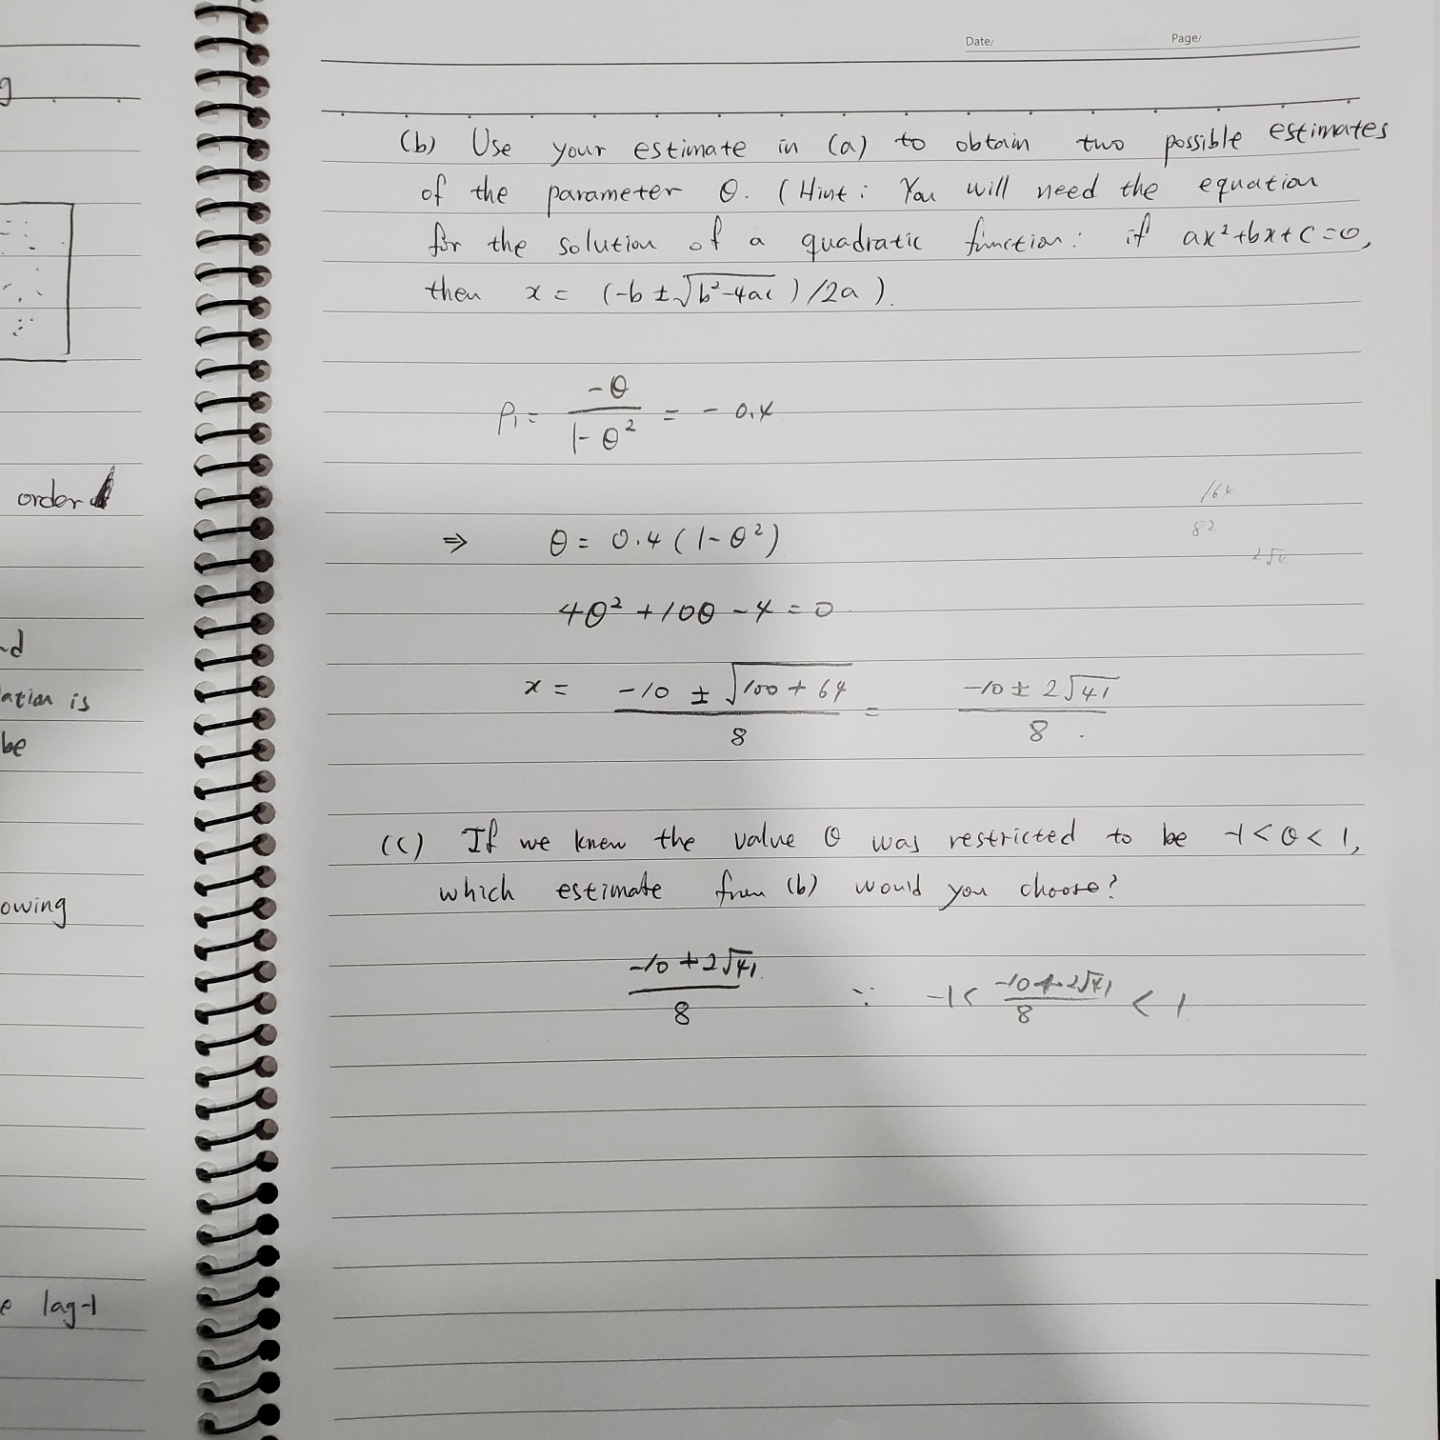 Date/ Page/
g
(b) Use your estimate in (a) to obtain two possible estimates
of the parameter θ. (Hint: You will need the equation
for the solution of a quadratic function: if ax²+bx+c=0,
then x = (-b ± √b²-4ac ) /2a ).
ρ₁ = -θ / 1-θ² = - 0.4
order
/64
82
⇒ θ = 0.4 (1-θ²)
250
4θ² + 10θ - 4 = 0
x = -10 ± √100 + 64 / 8 = -10 ± 2√41 / 8 .
is
be
(c) If we knew the value θ was restricted to be -1 < θ < 1,
which estimate from (b) would you choose?
owing
-10 + 2√41 / 8 ∵ -1 < -10 + 2√41 / 8 < 1
lag-1